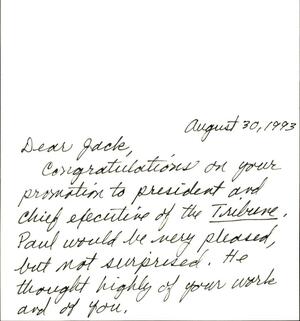 August 30, 1993
Dear Jack,
Congratulations on your
promotion to president and
chief executive of the Tribune.
Paul would be very pleased,
but not surprised. He
thought highly of your work
and of you.